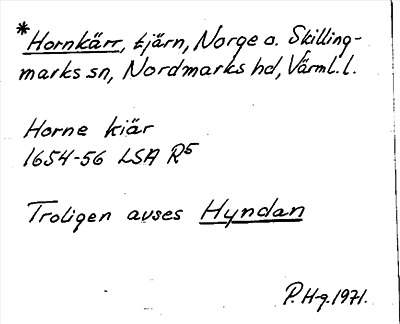 *Hornkärr, tjärn, Norge o. Skilling-
marks sn, Nordmarks hd, Värml. l.
Horne kiär
1654-56 LSA R5
Troligen avses Hyndan
P. H-g. 1971.